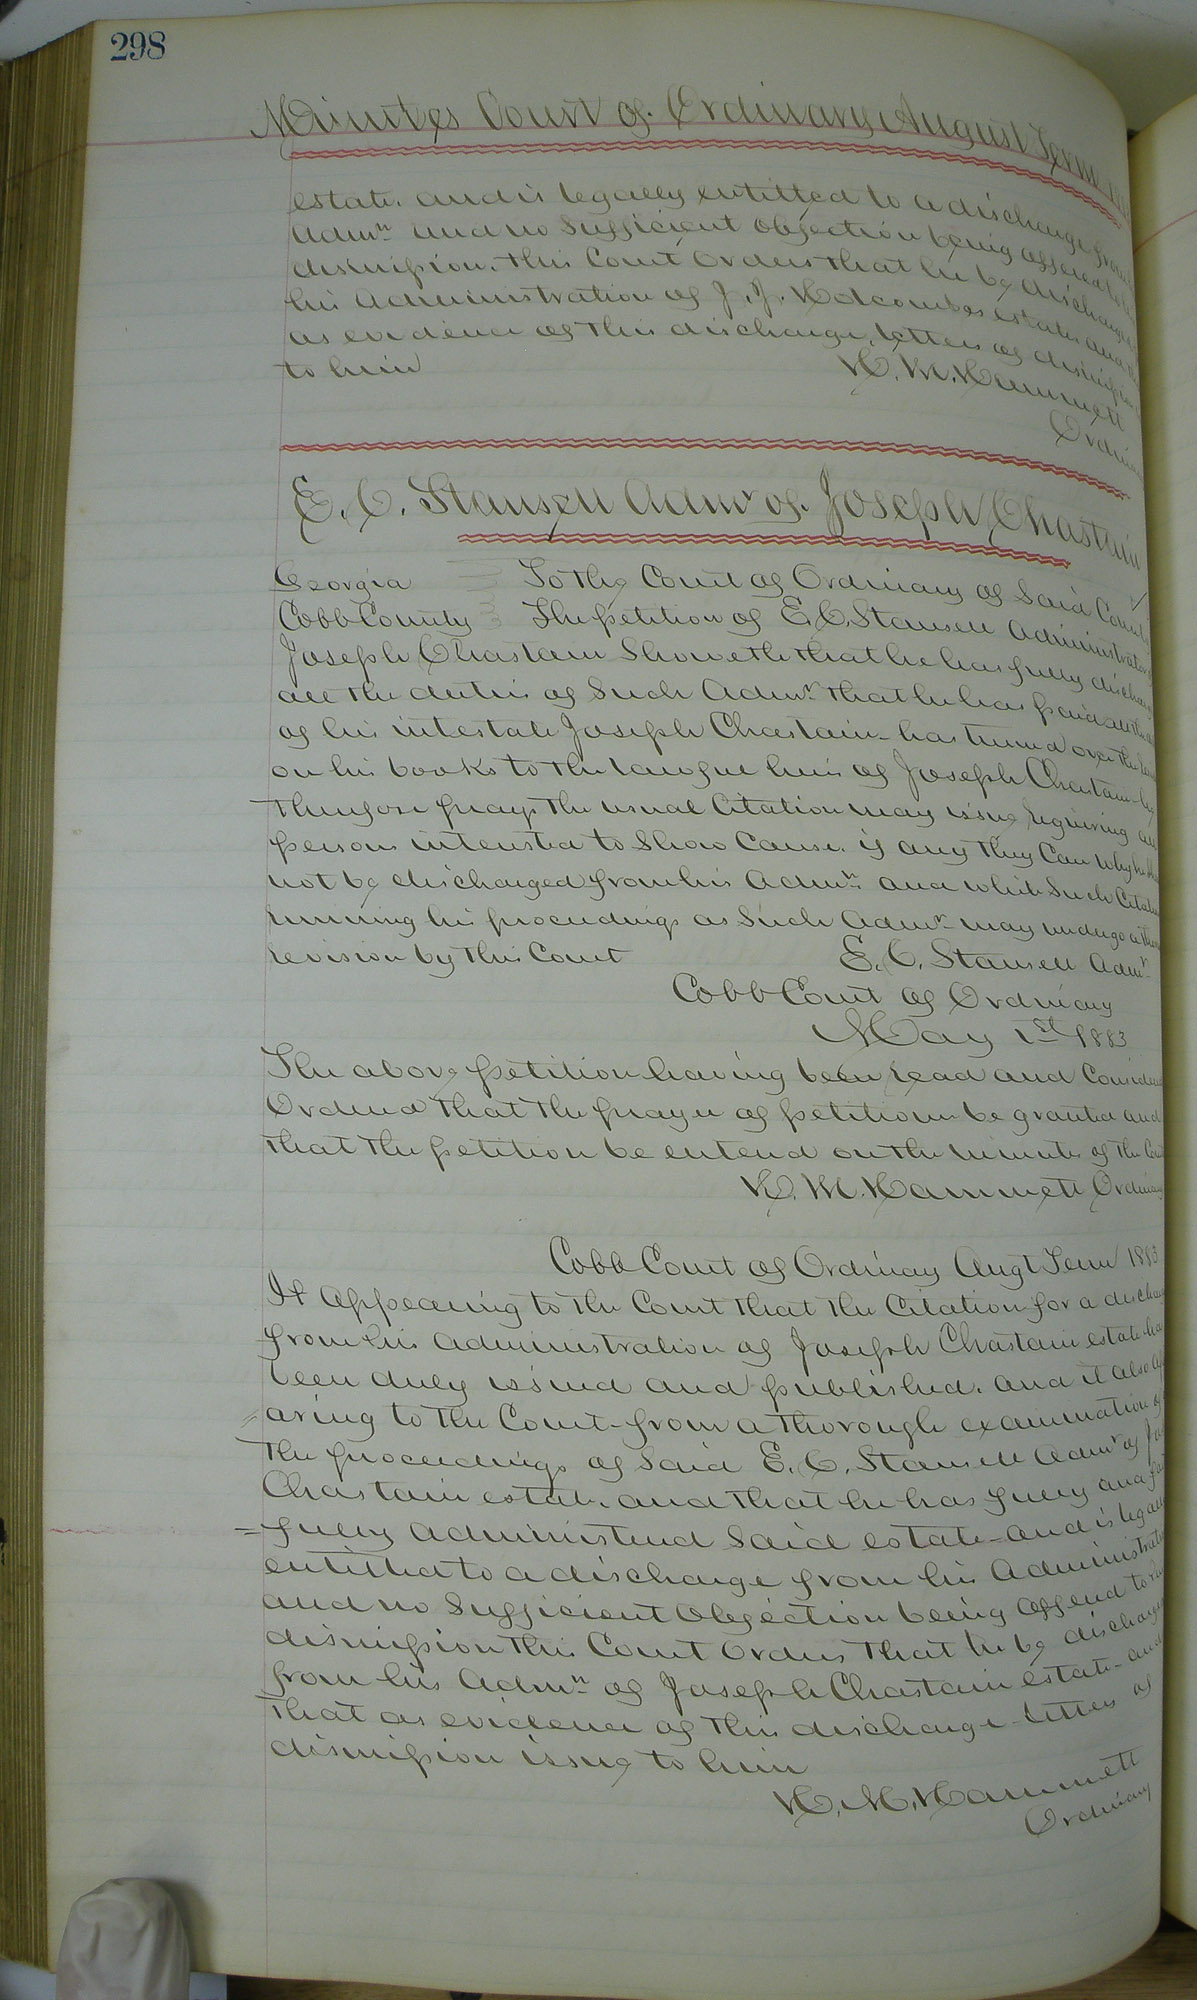 298
Minutes Court of Ordinary August Term
estate. and is legally entitled to a discharge from
Admn and no Sufficient Objection being offered to
dismission. this Court Orders that he be discharged
his Administration of J. J. Holcombes estate and
as evidence of this discharge, letters of dismission
to him
H. M. Hammett
Ordin
E. C. Stansell Admr of Joseph Chastain
Georgia To the Court of Ordinary of Said County
Cobb County The petition of E. C. Stansell Administrator of
Joseph Chastain Showeth that he has fully discharg
all the duties of Such Admr that he has paid all the
of his intestate Joseph Chastain has turned over the
on his books to the heirs of Joseph Chastain
Therefore prays the usual Citation may issue requiring all
persons interested to Show Cause. if any they Can why he
not be discharged from his Admn and while Such Citation
running his proceedings as Such Admr may undergo a thorou
revision by this Court E. C. Stansell Admr
Cobb Court of Ordinary
May 1st 1883
The above petition having been read and Consider
Ordered that the prayer of petitioner be granted and
that the petition be entered on the minutes of the Court
H. M. Hammett Ordinary
Cobb Court of Ordinary Augt Term 1883
It appearing to the Court that the Citation for a discharge
from his administration of Joseph Chastain estate has
been duly issued and published. and it also appe
aring to the Court from a thorough examination of
the proceedings of Said E. C. Stansell Admr of Jos
Chastain estate. and that he has fully and faith
= fully Administered Said estate and is legally
entitled to a discharge from his Administration
and no Sufficient Objection being offered to
dismission this Court Orders that he be discharged
from his Admn of Joseph Chastain estate and
that as evidence of this discharge letters of
dismission issue to him
H. M. Hammett
Ordinary